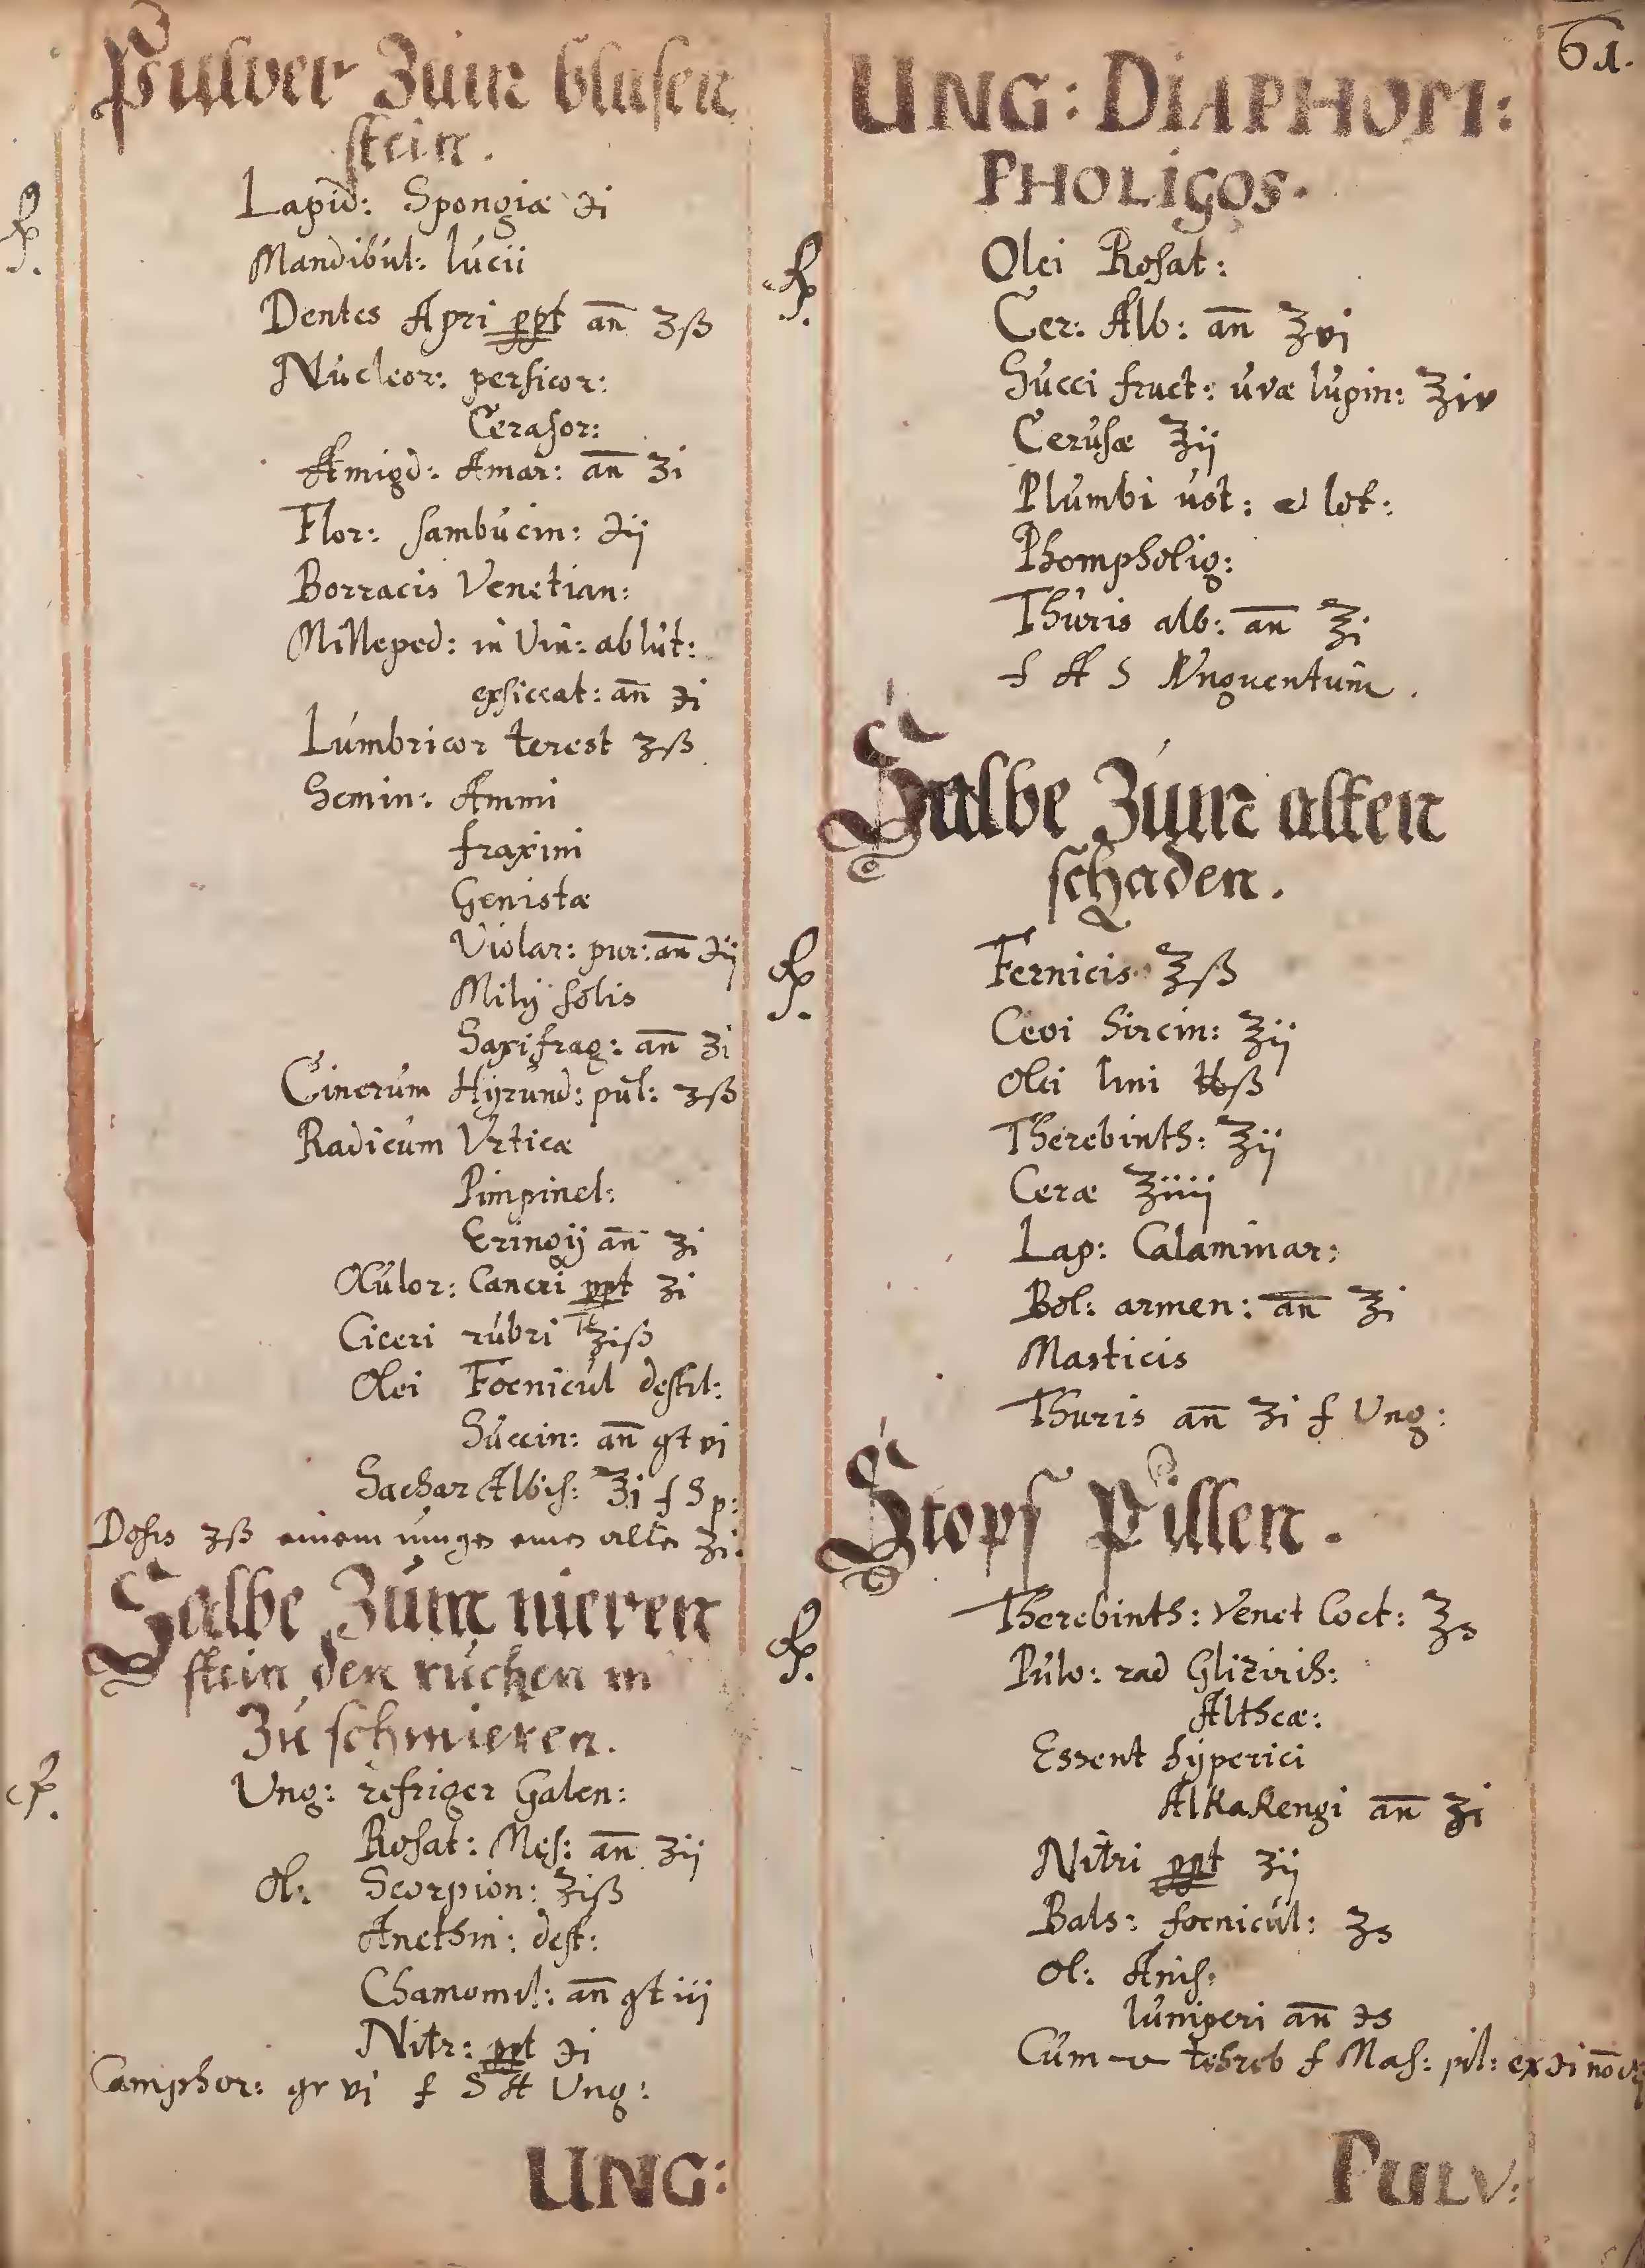 61.
Pulver Zum blasen
stein.
℞.
Lapid: Spongiæ ℈i
Mandibul: lucii
Dentes Apri ppt an̄ ʒß
Nucleor: persicor:
Cerasor:
Amigd: Amar: an̄ ʒi
Flor: sambucin: ℈ij
Borracis Venetian:
Milleped: in Vin: ablut:
exsiccat: an̄ ℈i
Lumbricor terest ʒß
Semin: Ammi
fraxini
Genistæ
Violar: pur: an̄ ℈ij
Milij solis
Saxifrag: an̄ ʒi
Cinerum Hyrund: pul: ʒß
Radicum Urticæ
Pimpinel:
Eringij an̄ ʒi
Oculor: Cancri ppt ʒi
Ciceri rubri ʒiß
Olei Foenicul destil:
Succin: an̄ gt vj
Sachar Albis: ℥i f S p:
Dosis ʒß einem eines alten ʒi.
Salbe Zum nieren
stein den rucken m
Zu schmieren.
℞.
Ung: refriger Galen:
Rosat: Mes: an̄ ʒij
Ol: Scorpion: ℥iß
Anethin: dest:
Chamomil: an̄ gt iij
Nitr: ppt ℈i
Camphor: gr vj f S A Ung:
UNG:
UNG: DIAPHOM:
PHOLIGOS.
℞.
Olei Rosat:
Cer: Alb: an̄ ℥vj
Succi fruct: uvæ lupin: ℥iv
Cerusæ ℥ij
Plumbi ust: et lot:
Phompholig:
Thuris alb: an̄ ℥i
f A S Unguentum.
Salbe Zum alten
schaden.
℞.
Fernicis ℥ß
Cevi hircin: ℥ij
Olei lini ℔ß
Therebinth: ℥ij
Ceræ ℥iiij
Lap: Calaminar:
Bol: armen: an̄ ℥i
Masticis
Thuris an̄ ʒi f Ung:
Stopf Pillen.
℞.
Therebinth: Venet Coct: ℥s
Pulv: rad Glizirih:
Altheæ:
Essent hyperici
Alkakengi an̄ ʒi
Nitri ppt ʒij
Bals: foenicul: ʒs
Ol: Anis:
Iuniperi an̄ ℈s
Cum tehreb f Mas: pil: ex ℈i
PULV: